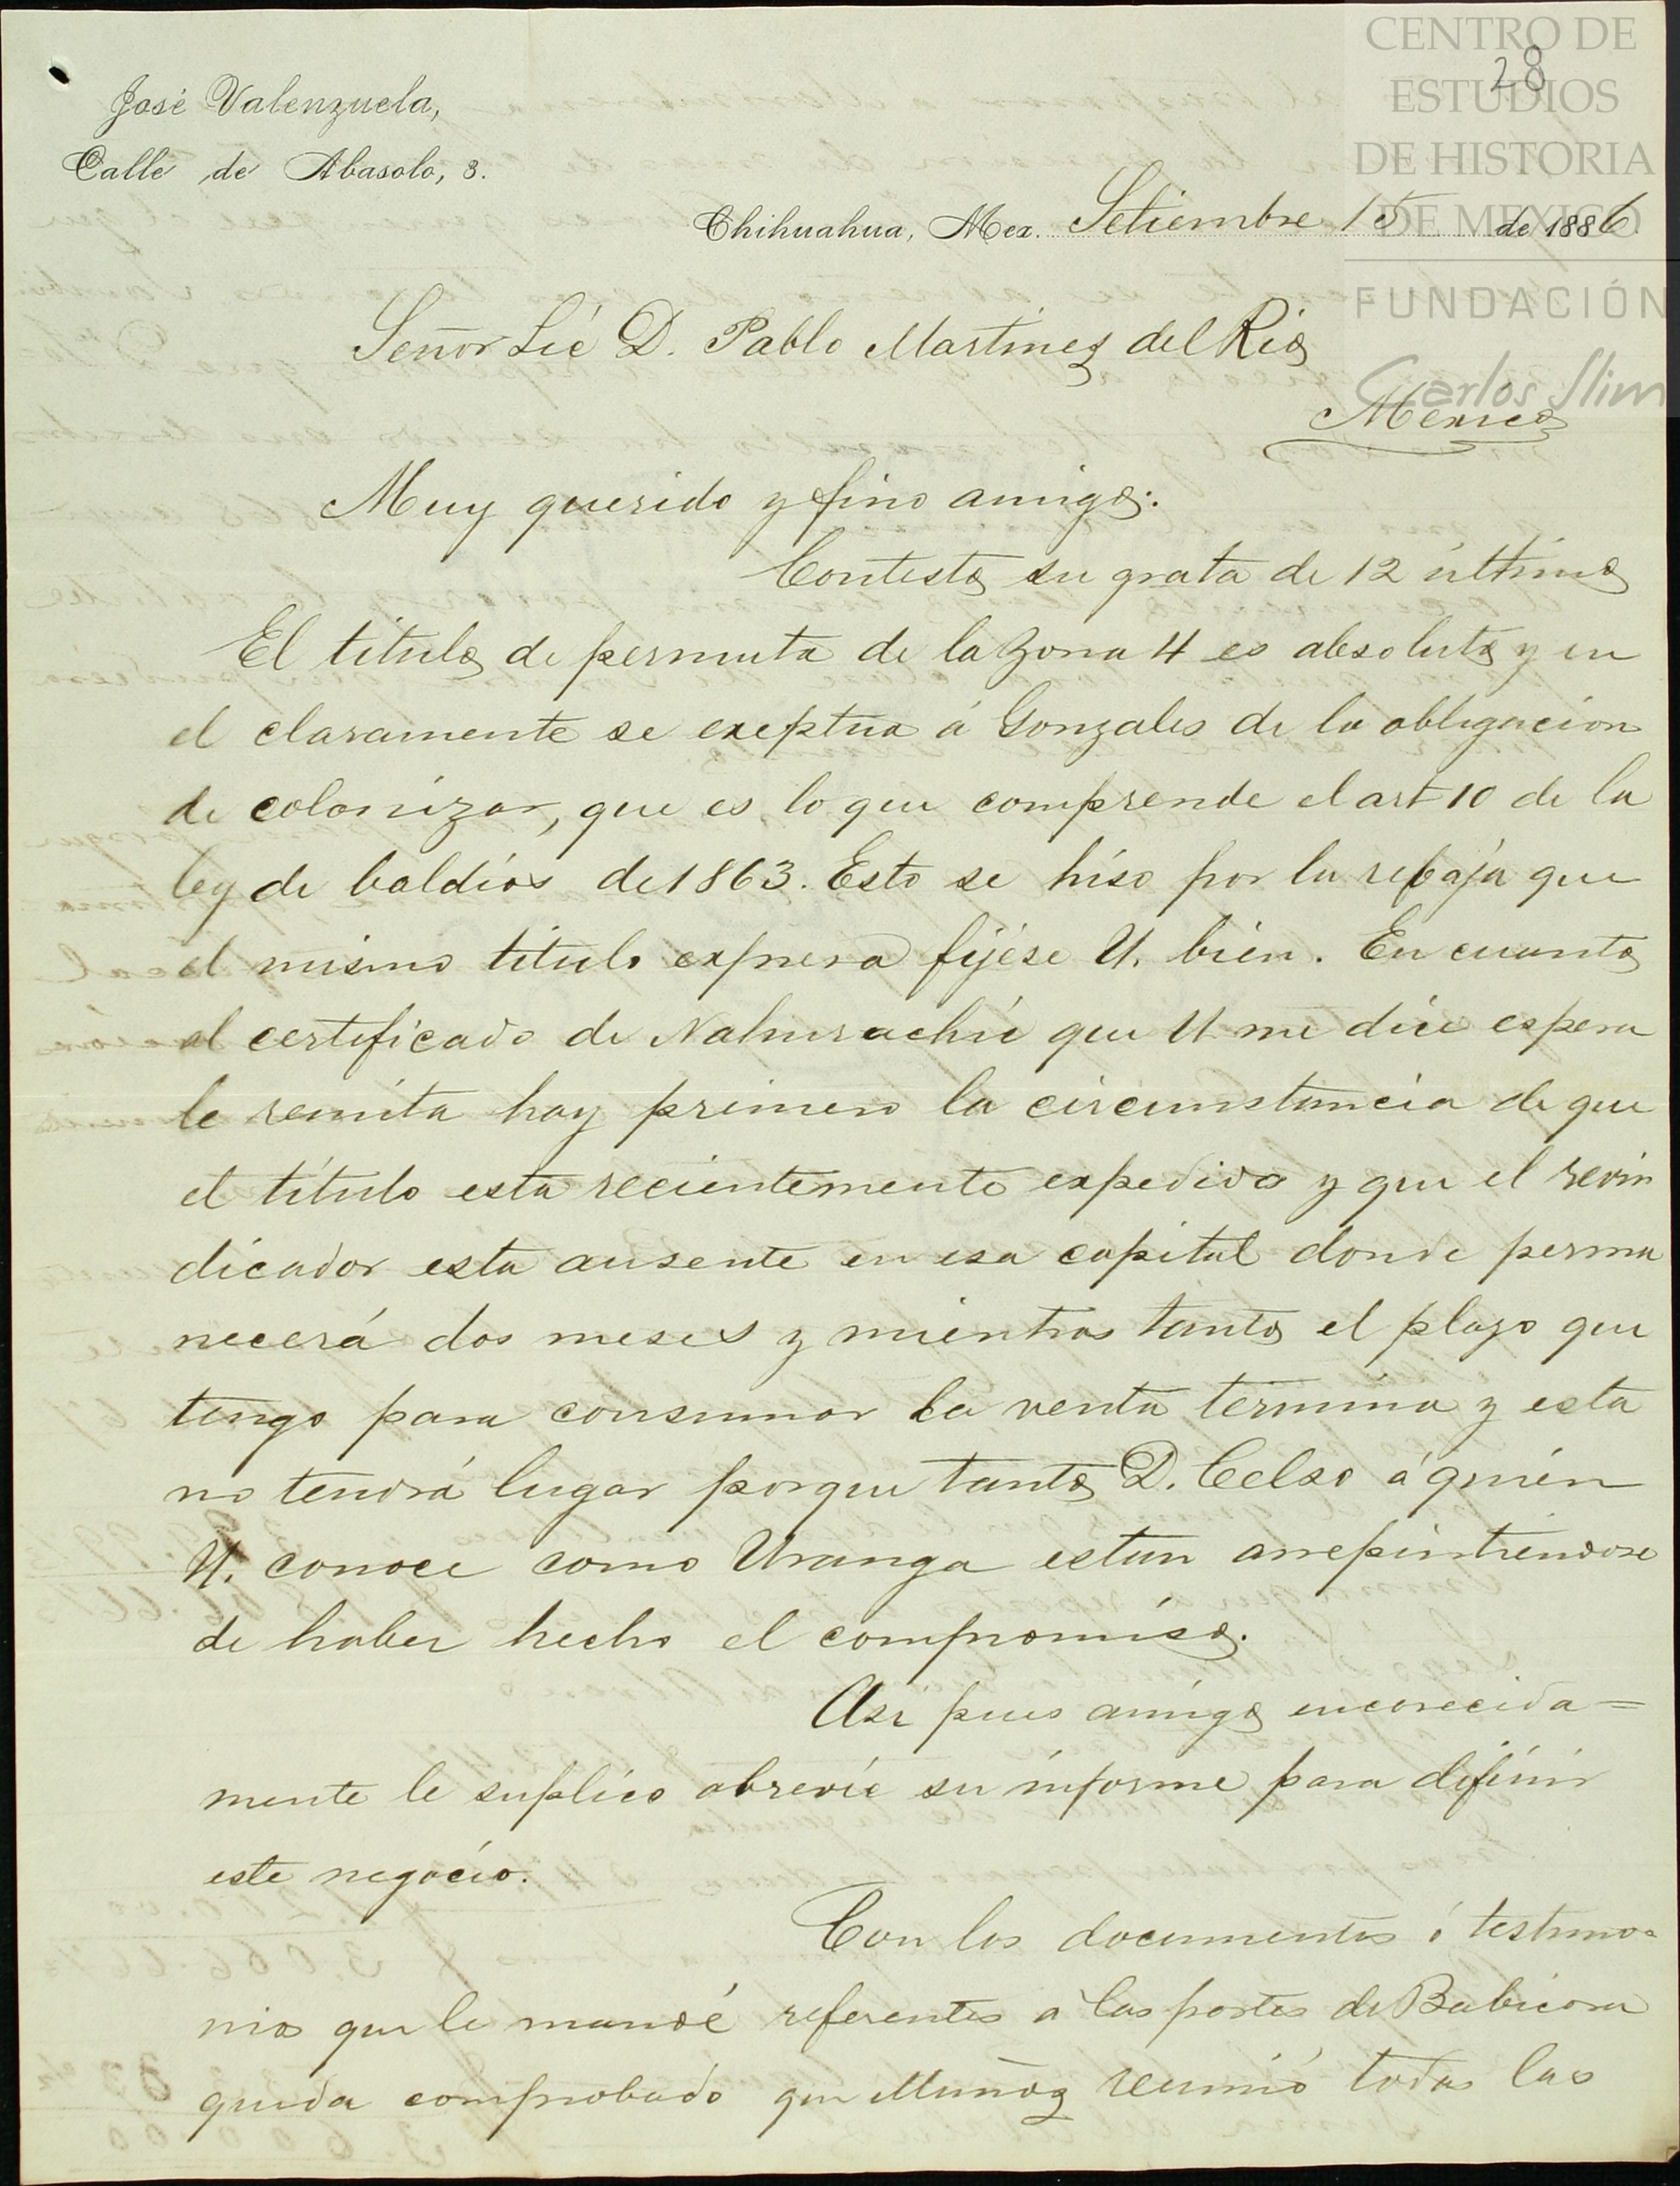 CENTRO DE
ESTUDIOS
DE HISTORIA
DE MEXICO
FUNDACIÓN
Carlos Slim
28
José Valenzuela,
Calle de Abasolo, 3.
Chihuahua, Mex. Setiembre 15 de 1886.
Señor Lic D. Pablo Martinez del Rio
Mexico
Muy querido y fino amigo:
Contesto su grata de 12 último
El titulo de permuta de la Zona 4 es absoluto y en
el claramente se exeptua á Gonzales de la obligacion
de colonizar, que es lo que comprende el art 10 de la
ley de baldíos de 1863. Esto se hiso por la rebaja que
el mismo titulo expresa fíjese U. bien. En cuanto
al certificado de Nahurachic que U me dice espera
le remita hay primero la circunstancia de que
el título esta recientemente expedido y que el revin
dicador esta ausente en esa capital donde perma
necerá dos meses y mientras tanto el plazo que
tengo para consumar la venta termina y esta
no tendrá lugar porque tanto D. Celso á quién
U. conoce como Uranga estan arrepintiendose
de haber hecho el compromiso.
Asi pues amigo encarecida=
mente le suplico abrevie su informe para difinir
este negocio.
Con los documentos ó testimo-
nios que le mandé referentes a las partes de Babicora
queda comprobado que Muñoz reunió todas las